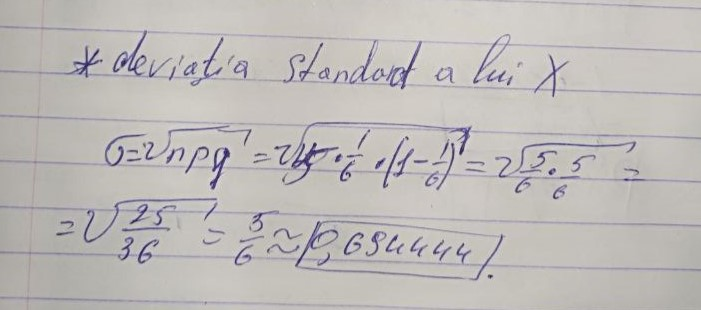 * deviația standard a lui X
σ=√npq = √5·1/6·(1-1/6) = √5/6·5/6 =
= √25/36 = 5/6 ≈ 0,694444.